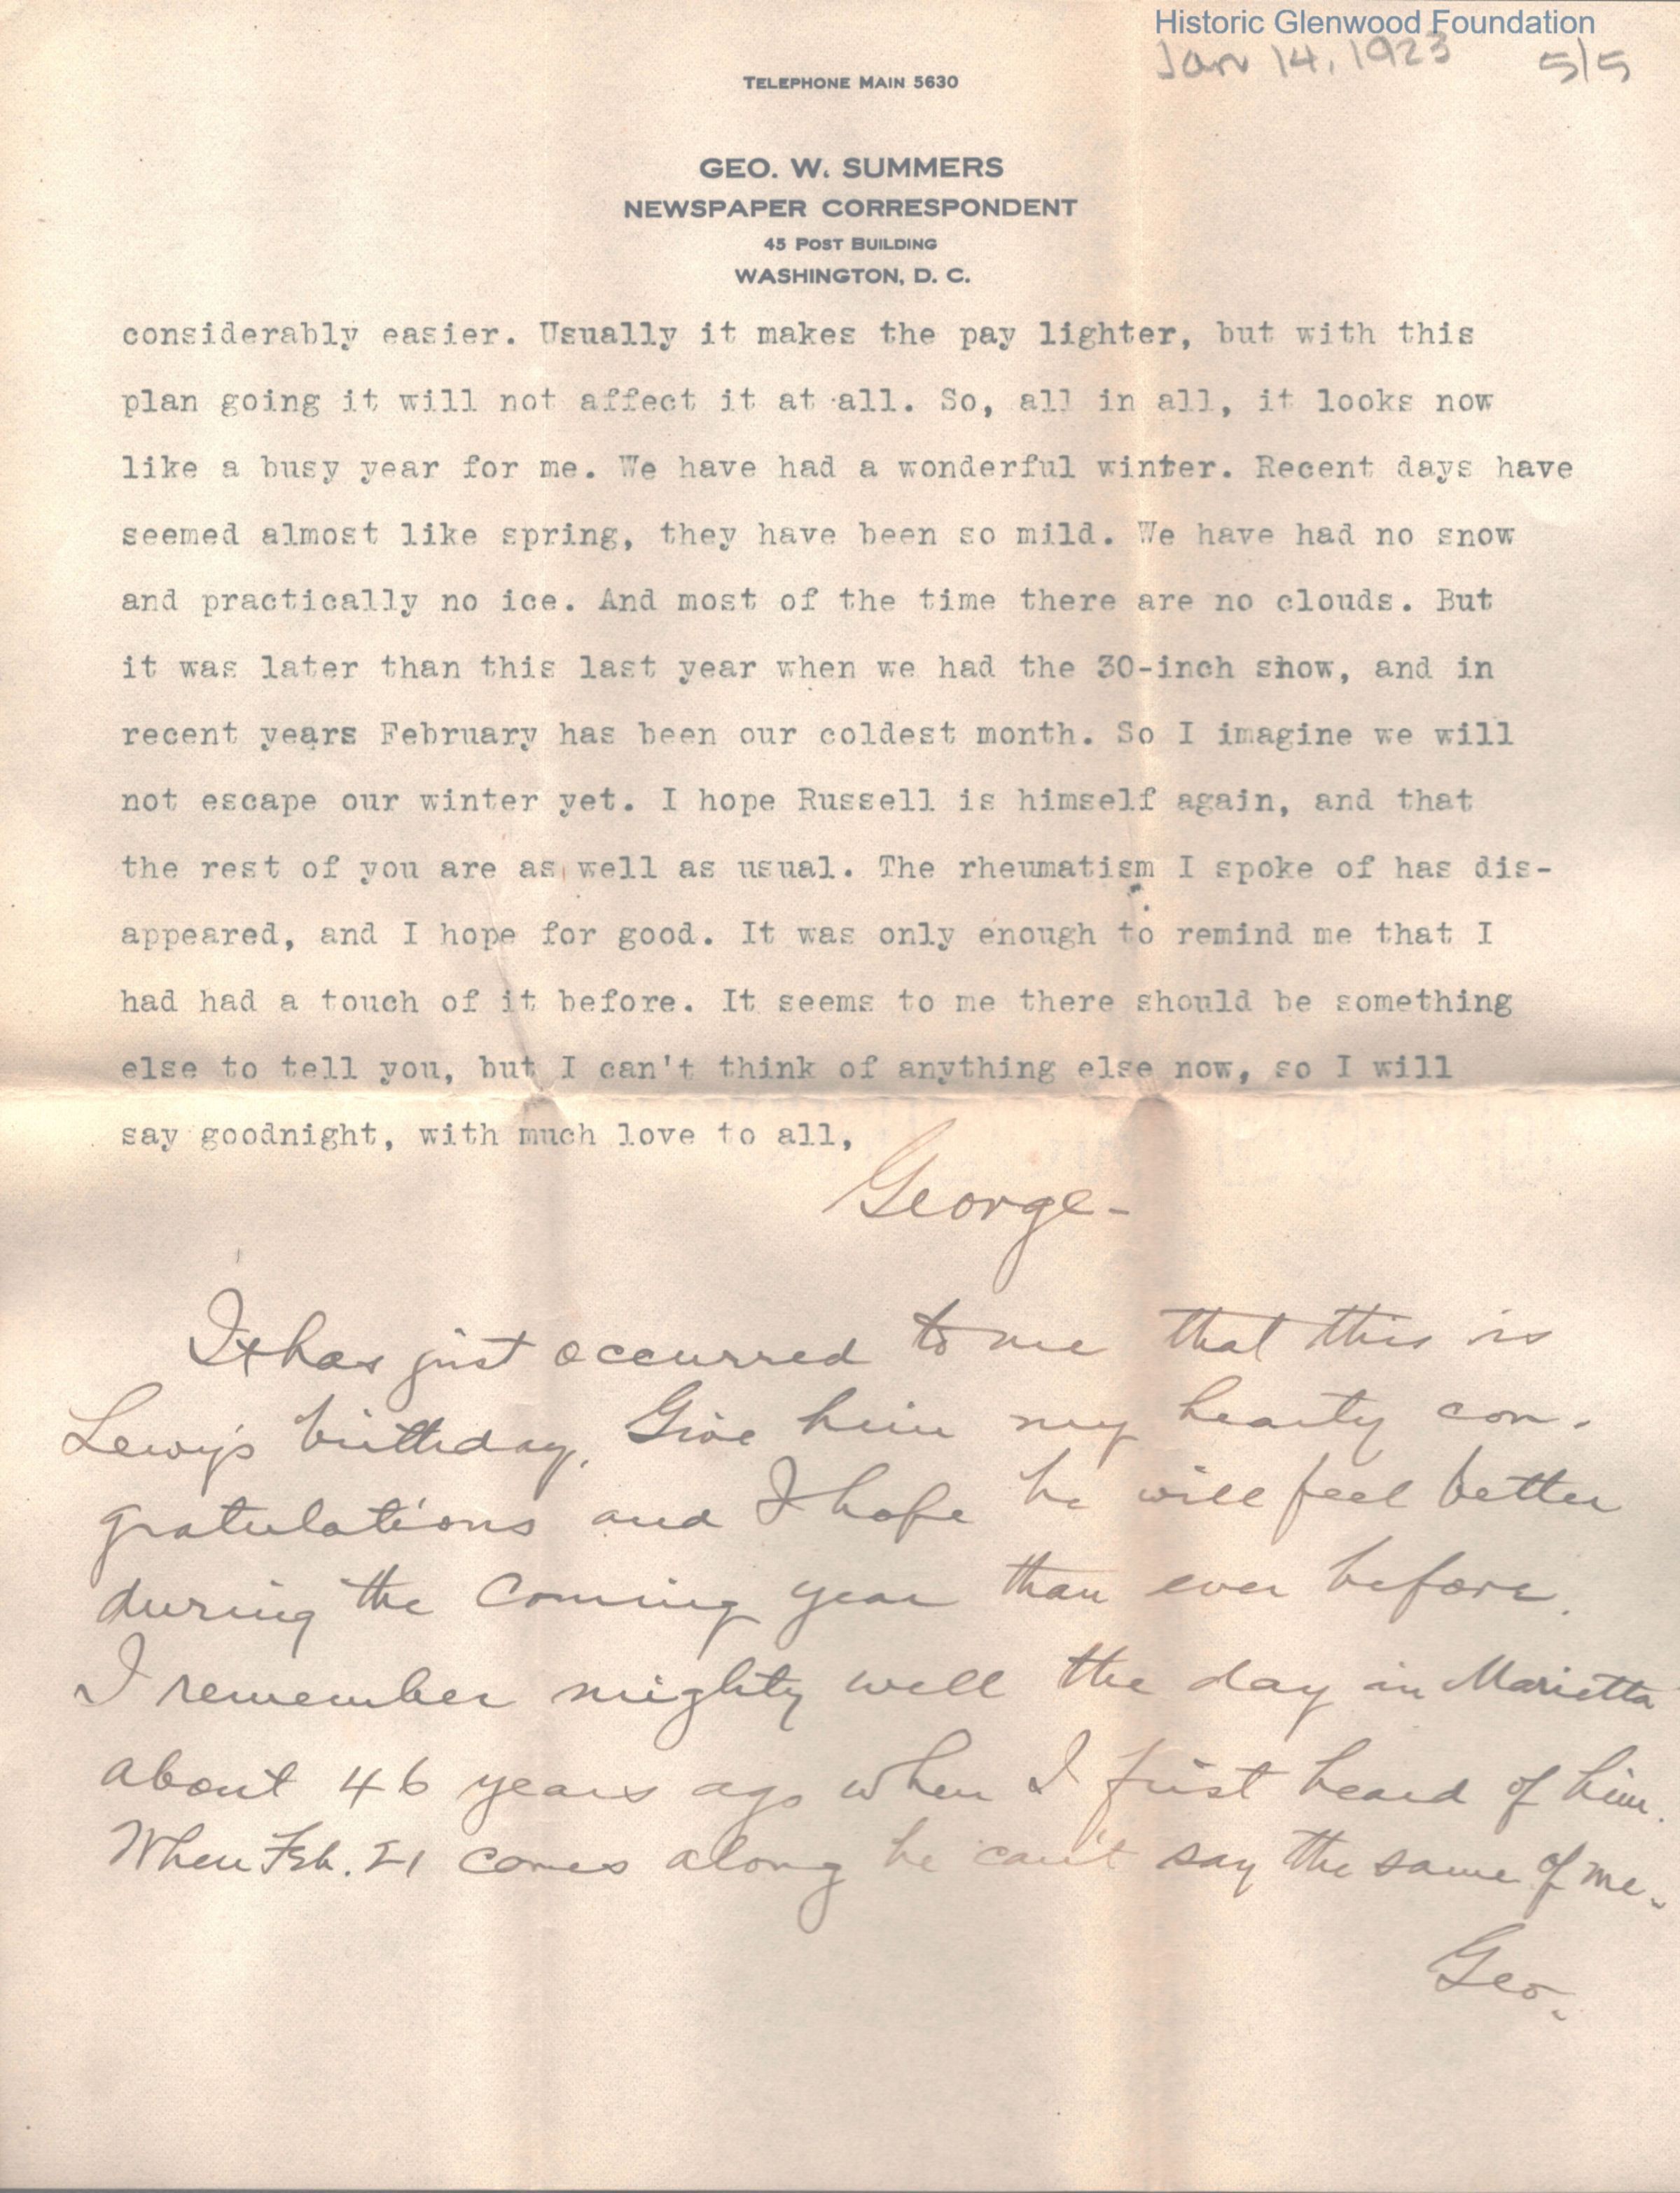 Historic Glenwood Foundation
Jan 14, 1923 5/5
TELEPHONE MAIN 5630
GEO. W. SUMMERS
NEWSPAPER CORRESPONDENT
45 POST BUILDING
WASHINGTON, D. C.
considerably easier. Usually it makes the pay lighter, but with this
plan going it will not affect it at all. So, all in all, it looks now
like a busy year for me. We have had a wonderful winter. Recent days have
seemed almost like spring, they have been so mild. We have had no snow
and practically no ice. And most of the time there are no clouds. But
it was later than this last year when we had the 30-inch show, and in
recent years February has been our coldest month. So I imagine we will
not escape our winter yet. I hope Russell is himself again, and that
the rest of you are as well as usual. The rheumatism I spoke of has dis-
appeared, and I hope for good. It was only enough to remind me that I
had had a touch of it before. It seems to me there should be something
else to tell you, but I can't think of anything else now, so I will
say goodnight, with much love to all,
George-
It has just occurred to me that this is
Lewy's birthday. Give him my hearty con-
gratulations and I hope he will feel better
during the coming year than ever before.
I remember mighty well the day in Marietta
about 46 years ago when I first heard of him.
When Feb. 21 comes along he can't say the same of me.
Geo.